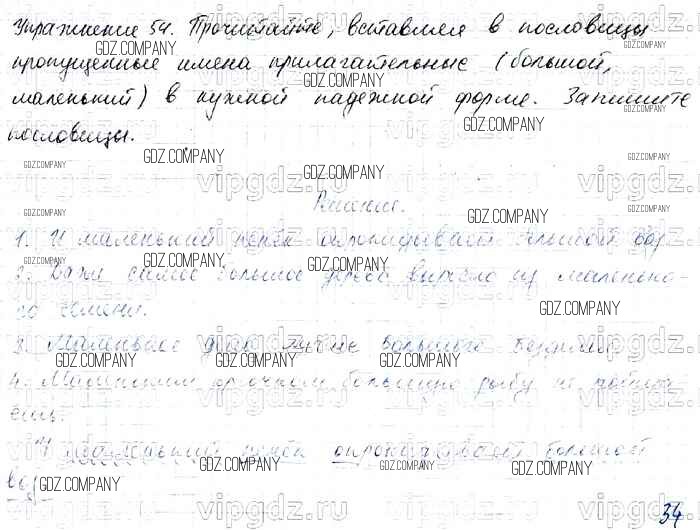 Упражнение 54. Прочитайте, вставляя в пословицы
пропущенные имена прилагательные (большой,
маленький) в нужной падежной форме. Запишите
пословицы.
Решение.
1. И маленький пень опрокидывает большой воз.
2. Даже самое большое дерево выросло из маленько-
го семени.
3. Маленькое дело лучше большого безделья.
4. Маленьким крючком большую рыбу не пойма
ешь.
И маленький пень опрокидывает большой
воз.
34
GDZ.COMPANY
vipgdz.ru